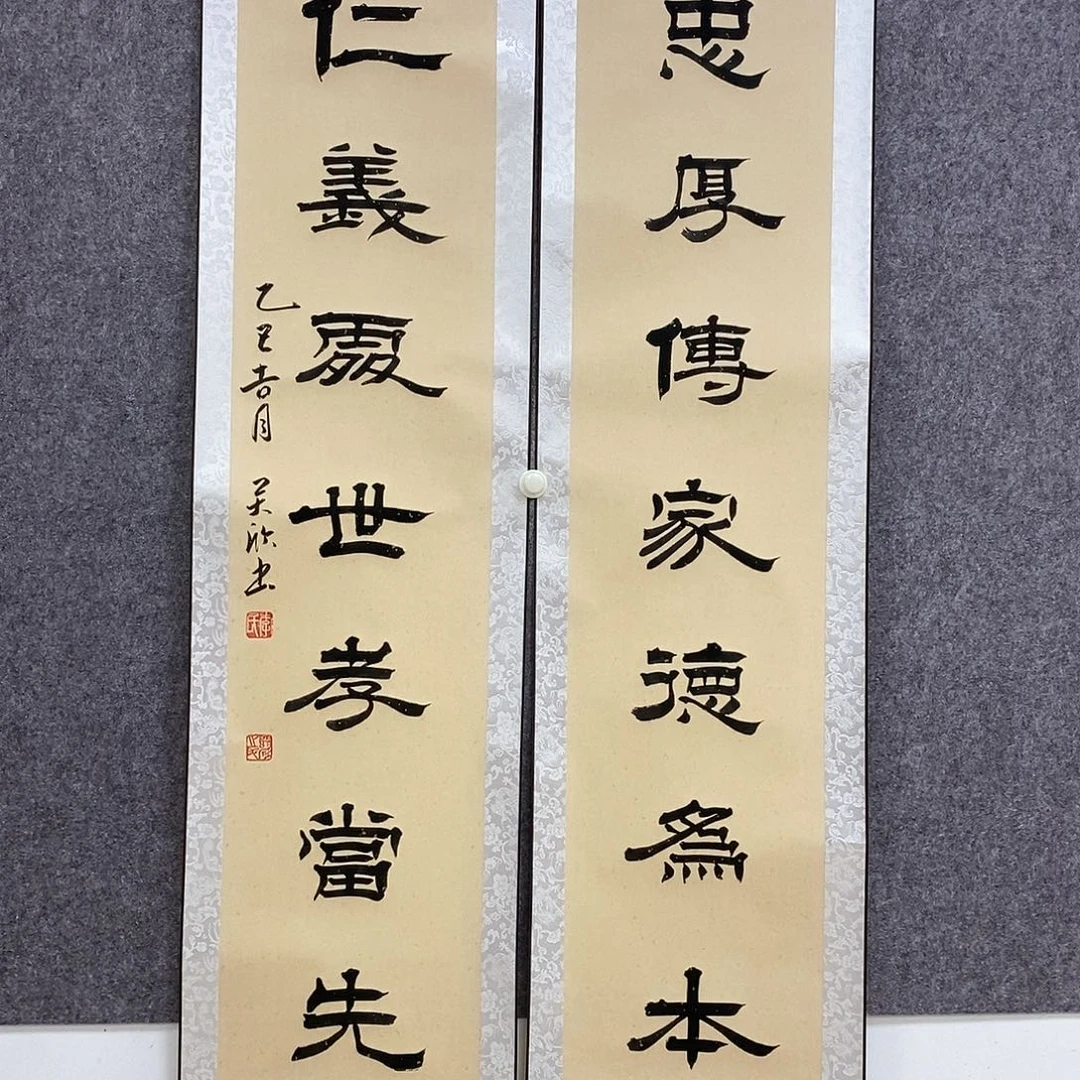 忠厚傳家德為本
仁義處世孝當先
乙巳吉月
吴欣书